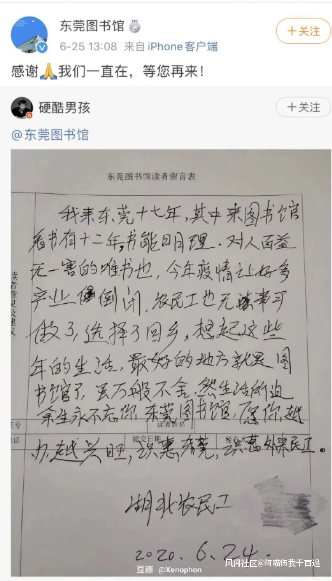 东莞图书馆
6-25 13:08 来自 iPhone客户端
+关注
感谢🙏我们一直在，等您再来！
硬酷男孩
+关注
@东莞图书馆
东莞图书馆读者留言表
我来东莞十七年，其中来图书馆
看书有十二年，书能明理，对人百益
无一害的唯书也，今年疫情让好多
产业倒闭，农民工也无事可
做了，选择了回乡，想起这些
年的生活，最好的地方就是图
书馆了，虽万般不舍，然生活所迫
余生永不忘你，东莞图书馆，愿你越
办越兴旺，识惠东莞，识惠外来民工
湖北农民工
2020.6.24.
豆瓣 @Xenophon